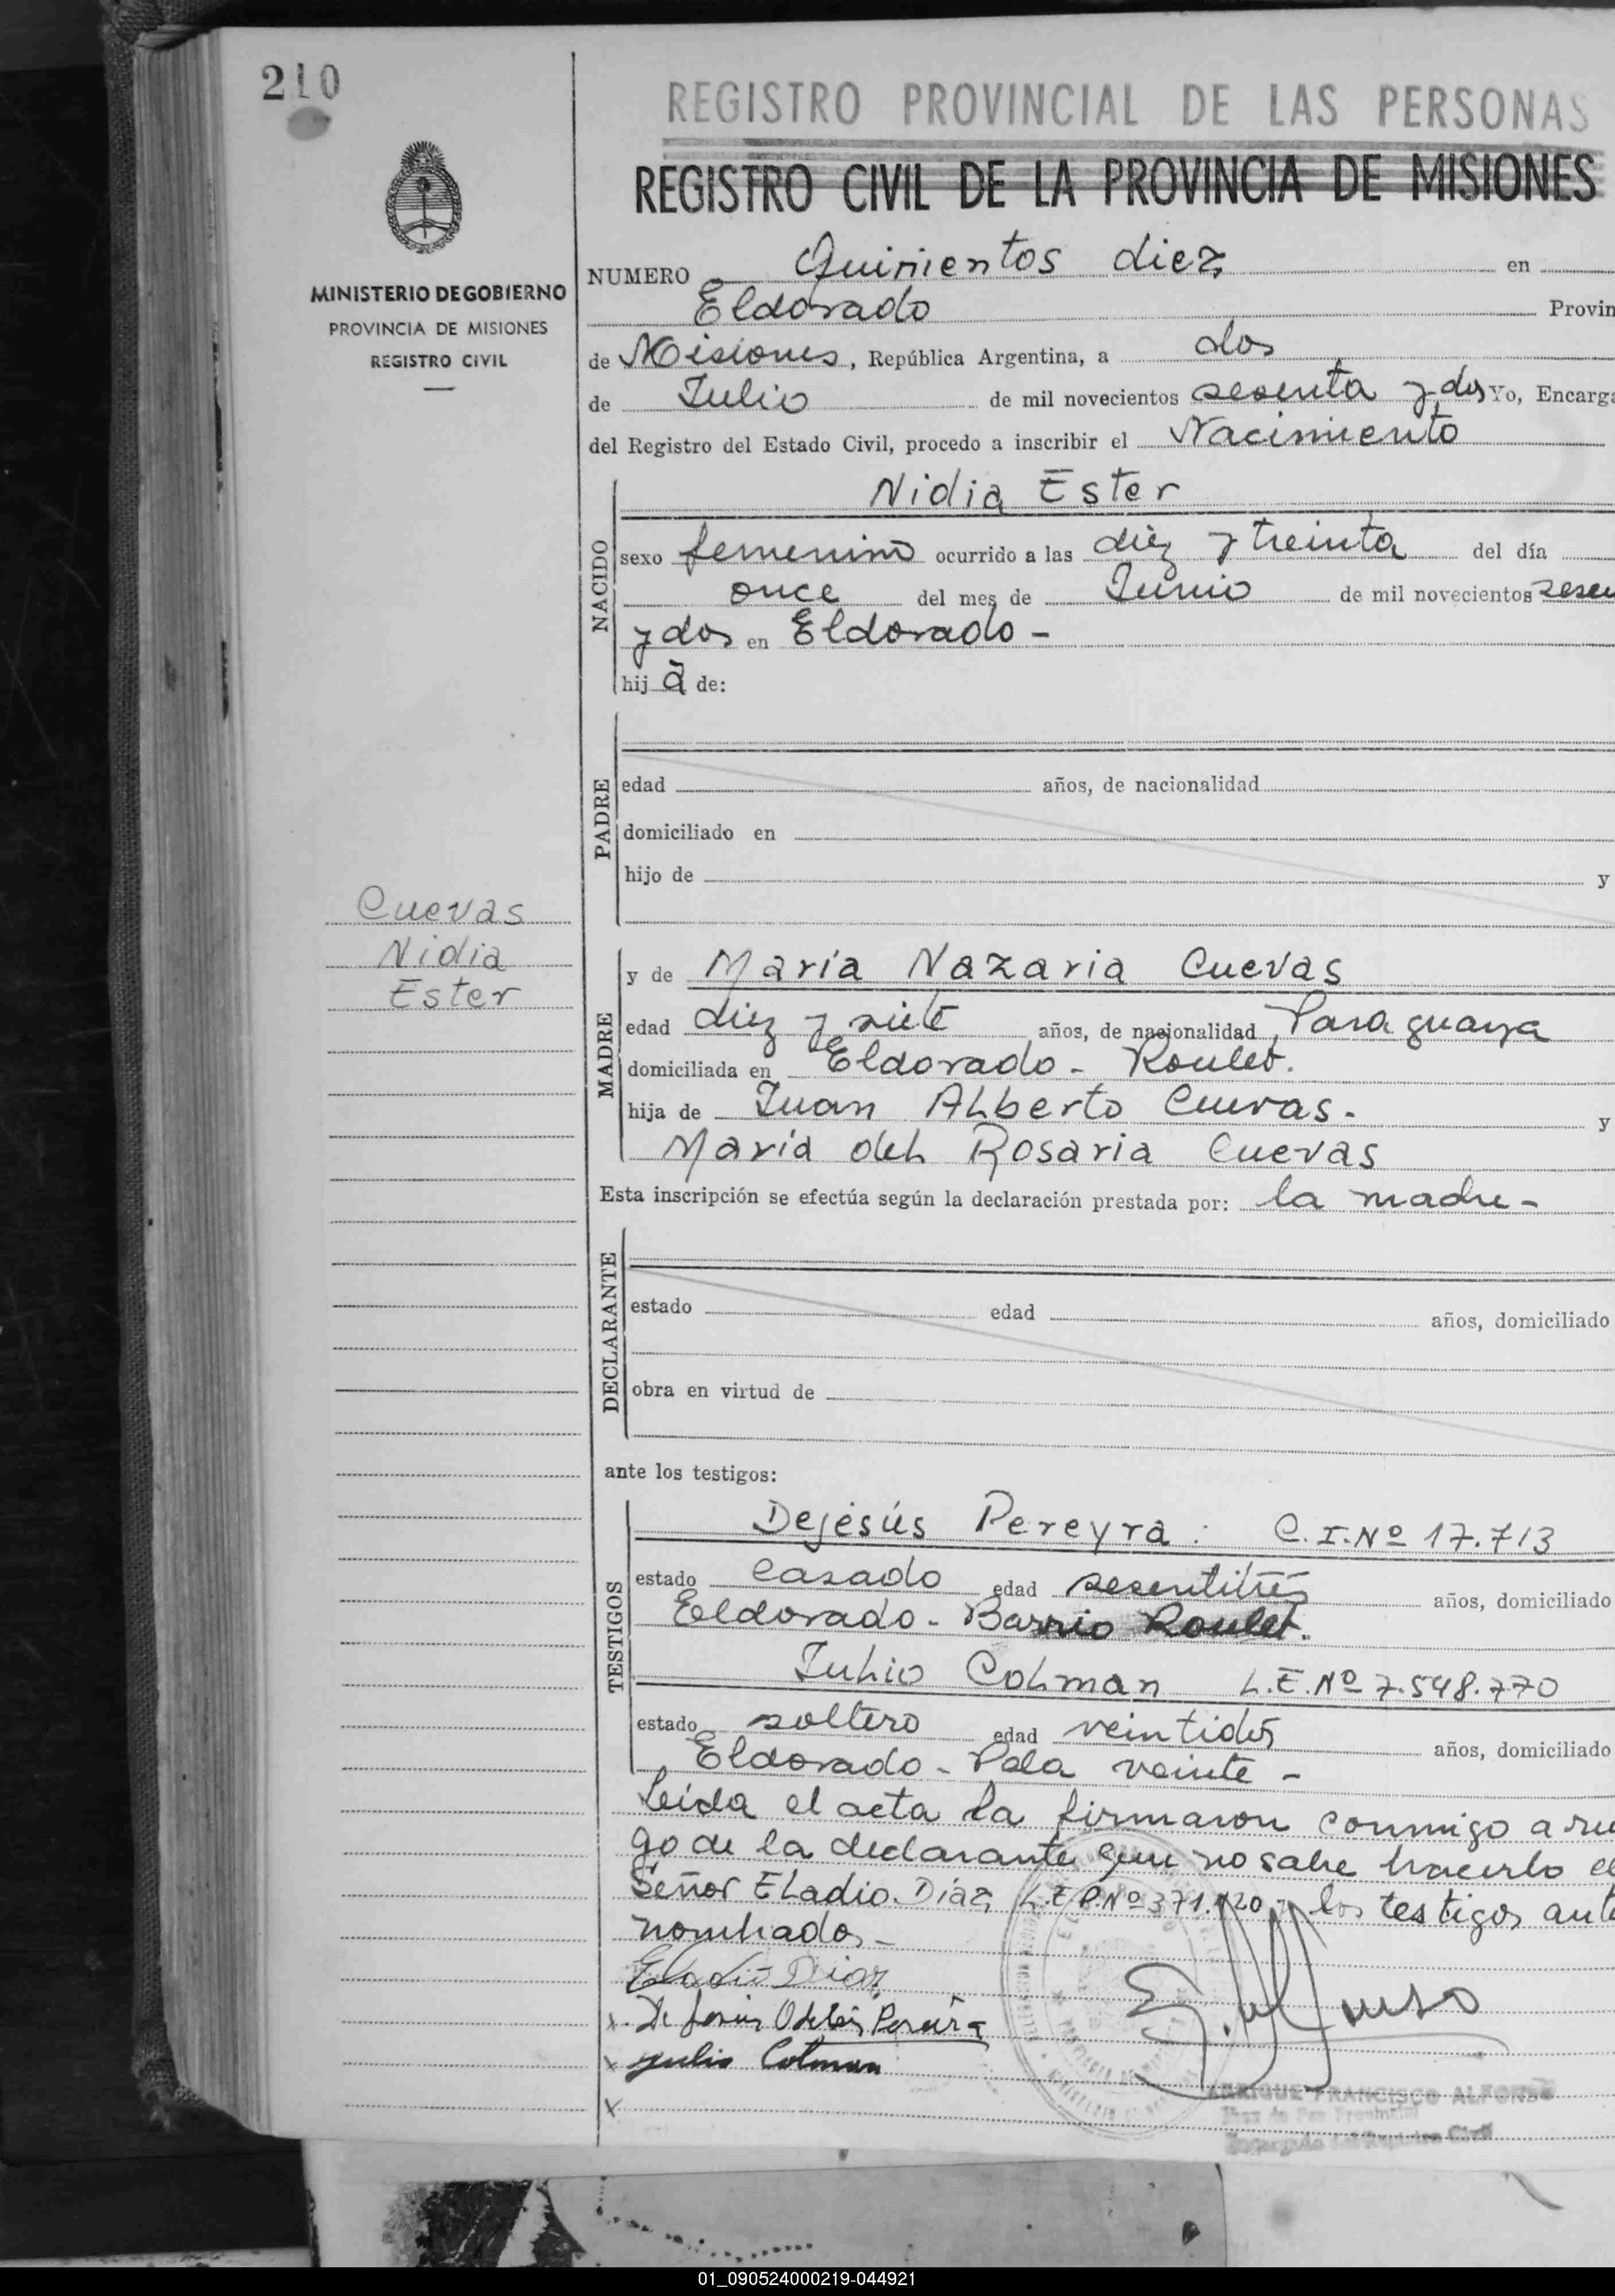 210
REGISTRO PROVINCIAL DE LAS PERSONAS
REGISTRO CIVIL DE LA PROVINCIA DE MISIONES
MINISTERIO DE GOBIERNO
PROVINCIA DE MISIONES
REGISTRO CIVIL
NUMERO Quinientos diez en
Eldorado Provin
de Misiones, República Argentina, a dos
de Julio de mil novecientos sesenta y dos Yo, Encarga
del Registro del Estado Civil, procedo a inscribir el Nacimiento
NACIDO
Nidia Ester
sexo femenino ocurrido a las diez y treinta del día
once del mes de Junio de mil novecientos sesen
y dos en Eldorado -
hij a de:
PADRE
edad años, de nacionalidad
domiciliado en
hijo de y
Cuevas
Nidia
Ester
MADRE
y de María Nazaria Cuevas
edad diez y siete años, de nacionalidad Paraguaya
domiciliada en Eldorado - Roulet.
hija de Juan Alberto Cuevas. y
María del Rosaria Cuevas
Esta inscripción se efectúa según la declaración prestada por: la madre -
DECLARANTE
estado edad años, domiciliado
obra en virtud de
ante los testigos:
TESTIGOS
Dejésús Pereyra : C.I.Nº 17.713
estado casado edad sesentitrés años, domiciliado
Eldorado - Barrio Roulet.
Julio Colman L.E.Nº 7.548.770
estado soltero edad veintidós años, domiciliado
Eldorado - Pala veinte -
Leída el acta la firmaron conmigo a rue
go de la declarante que no sabe hacerlo el
Señor Eladio Díaz, Nº 371.120 y los testigos ante
nombrados -
Eladio Diaz
x. Pereira
x Julio Colman
x
ENRIQUE FRANCISCO ALFONSO
Juez de Paz Provincial
Encargado del Registro Civil
01_090524000219-044921